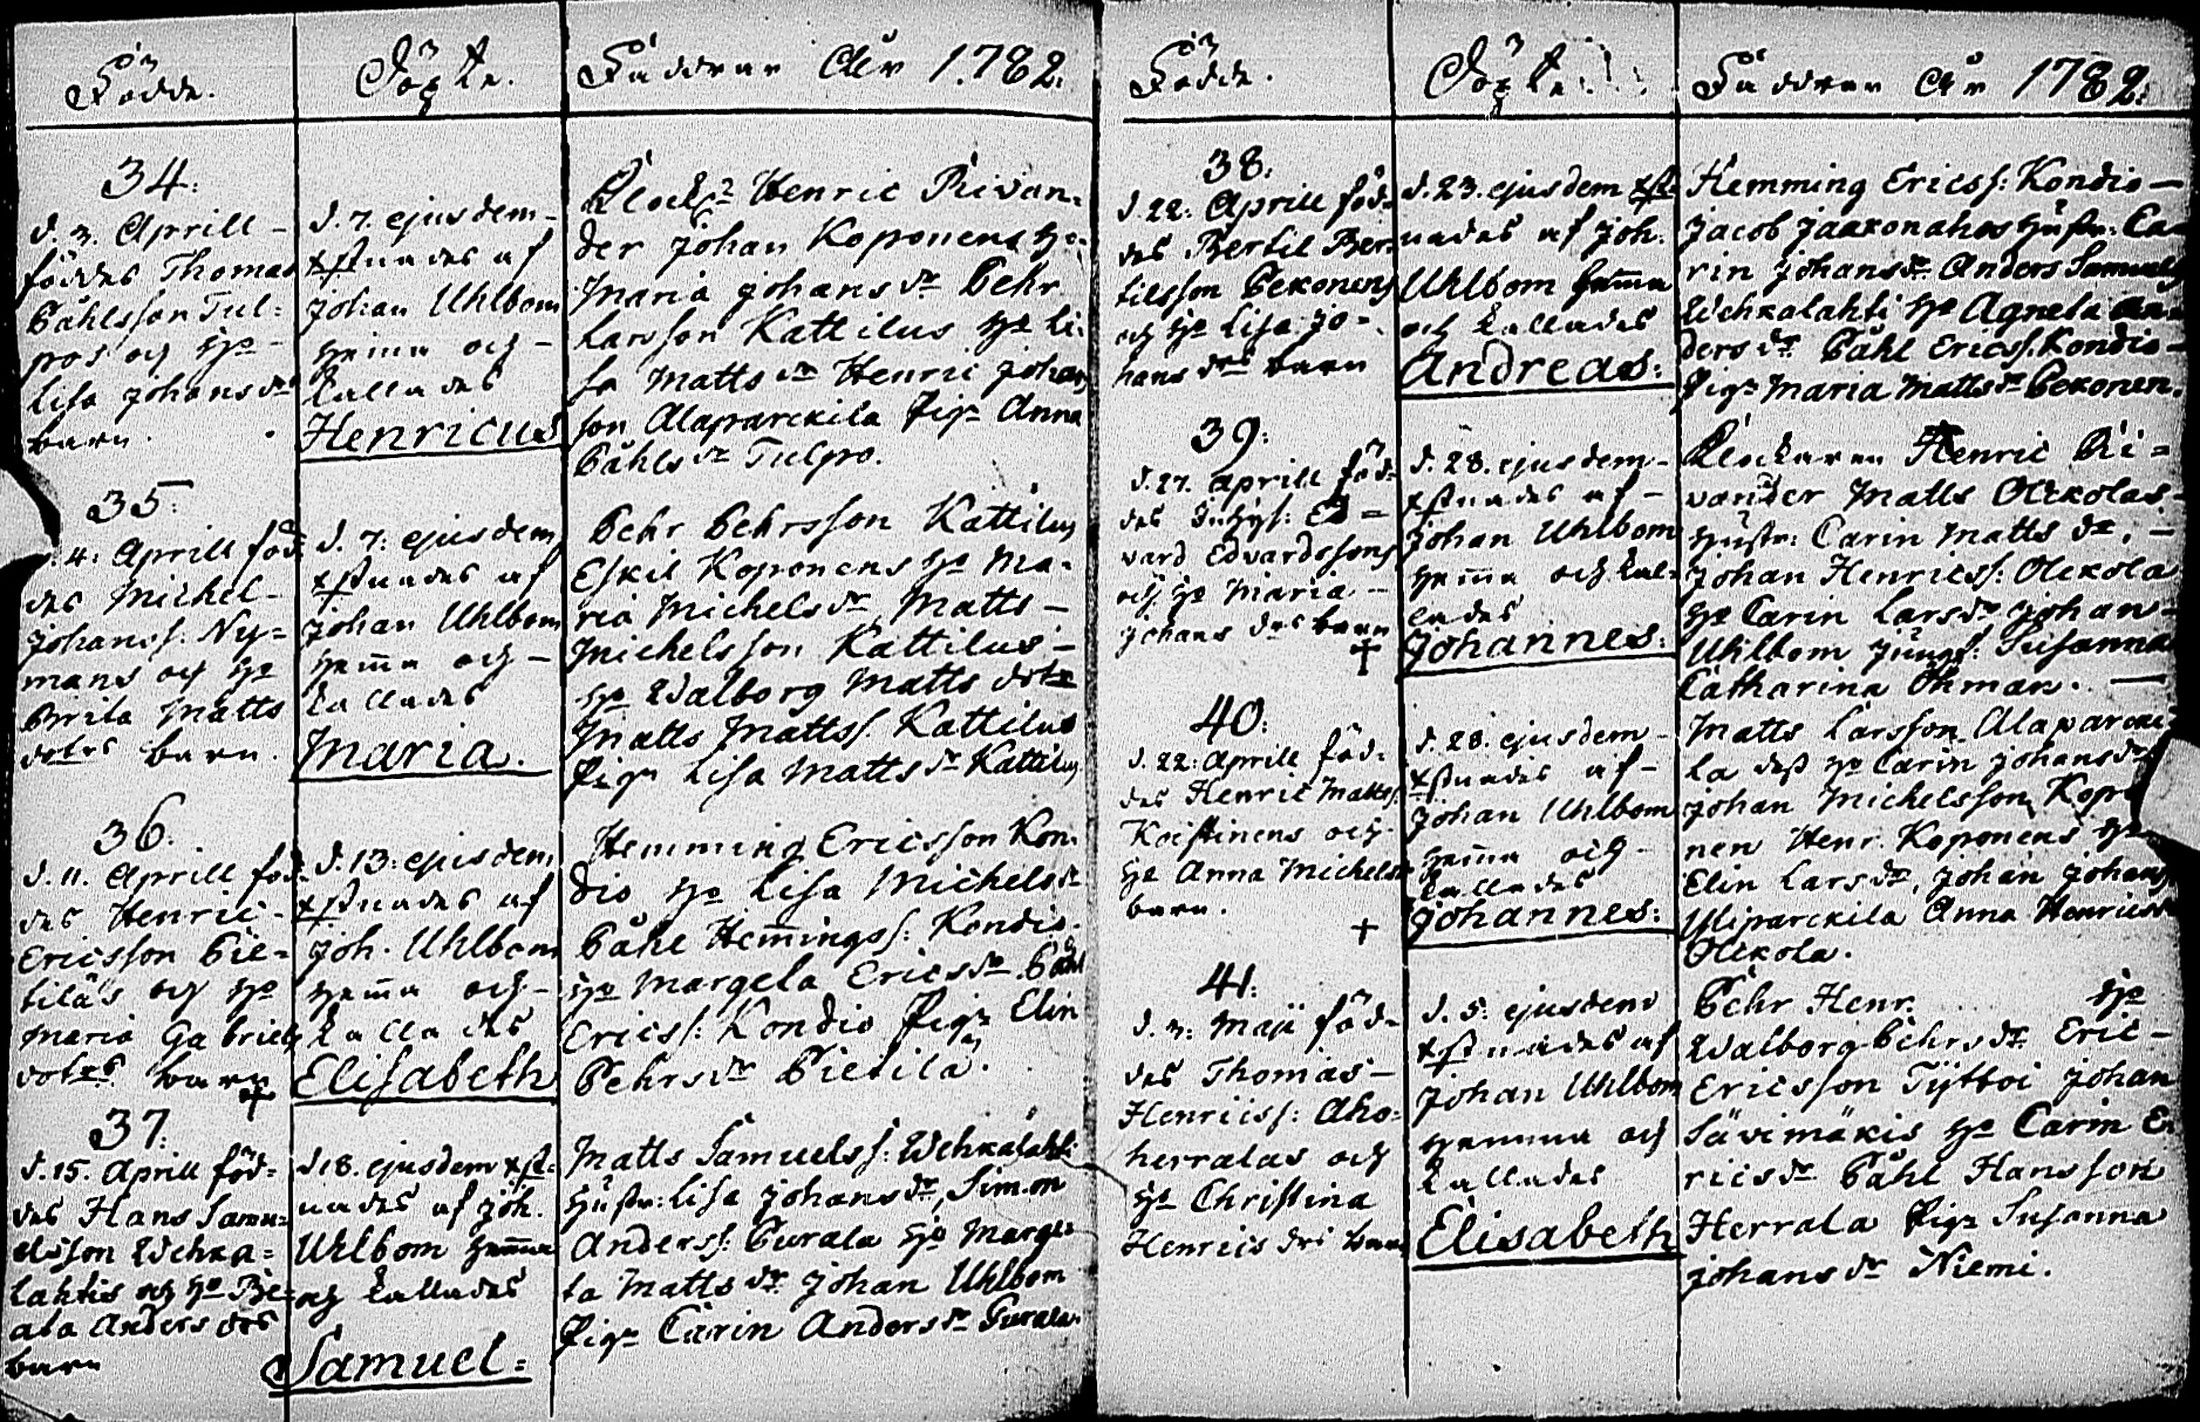 Födde.
Döpte.
Faddrar År 1782.
34.
d. 3. Aprill
föddes Thomas
Påhlsson Tul=
pos och H:o
Lisa Johansdrs
barn.
d. 7. ejusdem
xstnades af
Johan Uhlbom
hema och
kallades
Henricus
Klock: Henric Rivan=
der Johan Koponens H:o
Maria Johans dr Pehr
Larsson Kattilus H:o Li=
sa Matts dr Henric Johans
son Alaparckila Pig: Anna
Påhls dr Tulpo.
35.
4. Aprill föd=
des Michel
Johanss: Ny=
mans och H:o
Brita Matts
dotrs barn.
d. 7. ejusdem
xstnades af
Johan Uhlbom
hema och
kallades
Maria.
Pehr Pehrsson Kattilus
Eskil Koponens H:o Ma=
ria Michels dr Matts
Michelsson Kattilus
H:o Walborg Matts dotr
Matts Mattss. Kattilus
Pig: Lisa Matts dr Kattilus
36.
d. 11. Aprill föd=
des Henric
Ericsson Pie=
tiläs och H:o
Maria Gabriels
dotrs barn
+
d. 13. ejusdem
xstnades af
Joh. Uhlbom
hema och
kallades
Elisabeth
Hemming Ericsson Kon=
dio H:o Lisa Michels dr
Påhl Hemingss: Kondio
H:o Margeta Erics dr Påhl
Ericss: Kondio Pig: Elin
Pehrs dr Pietilä.
37.
d. 15. Aprill föd=
des Hans Samu=
elsson Wehka=
lahtis och H:o Be=
ata Anders drs
barn
d. 18. ejusdem xst=
nades af Joh.
Uhlbom hema
och kallades
Samuel=
Matts Samuelss: Wehkalahti
Hustr: Lisa Johans dr, Simon
Anderss: Purala H:o Marge=
ta Matts dr Johan Uhlbom
Pig: Carin Anders dr Purala.
Födde.
Döpte.
Faddrar År 1782.
38.
d. 22. Aprill föd=
des Bertil Ber=
tilsson Pekonens
och H:o Lisa Jo=
hans drs barn
d. 23. ejusdem xst=
nades af Joh.
Uhlbom hema
och kallades
Andreas.
Hemming Ericss: Kondio
Jacob Jaakonahos Hustr: Ca=
rin Johansdr Anders Samuelss
Wehkalahti H:o Agneta An=
ders dr Påhl Ericss. Kondio
Pig: Maria Matts dr Pekonen.
39.
d. 27. Aprill föd=
des Inhys: Ed=
vard Edvardssons
och H:o Maria
Johans drs barn
+
d. 28. ejusdem
xstnades af
Johan Uhlbom
hema och kal=
lades
Johannes.
Klockaren Henric Ri=
vander Matts Olkolas
Hustr: Carin Matts dr,
Johan Henricss: Olkola
H:o Carin Lars dr Johan
Uhlbom Jungf: Susanna
Catharina Öhman.
40.
d. 22. Aprill föd=
des Henric Mattss
Koistinens och
H:o Anna Michels dr
barn.
+
d. 28. ejusdem
xstnades af
Johan Uhlbom
hema och
kallades
Johannes.
Matts Larsson Alaparcki=
la dess H:o Carin Johans dr
Johan Michelsson Kopo
nen Henr. Koponens H:o
Elin Lars dr, Johan Johanss
Yliparckila Anna Henrics dr
Olkola.
41.
d. 3. Maji föd=
des Thomas
Henricss: Aho=
herralas och
H:o Christina
Henrics drs barn
d. 5. ejusdem
xstnades af
Johan Uhlbom
hemma och
kallades
Elisabeth
Pehr Henr. H:o
Walborg Pehrs dr Eric
Ericsson Tyttoi Johan
Sävimäkis H:o Carin E=
rics dr Påhl Hansson
Herrala Pig: Susanna
Johans dr Niemi.